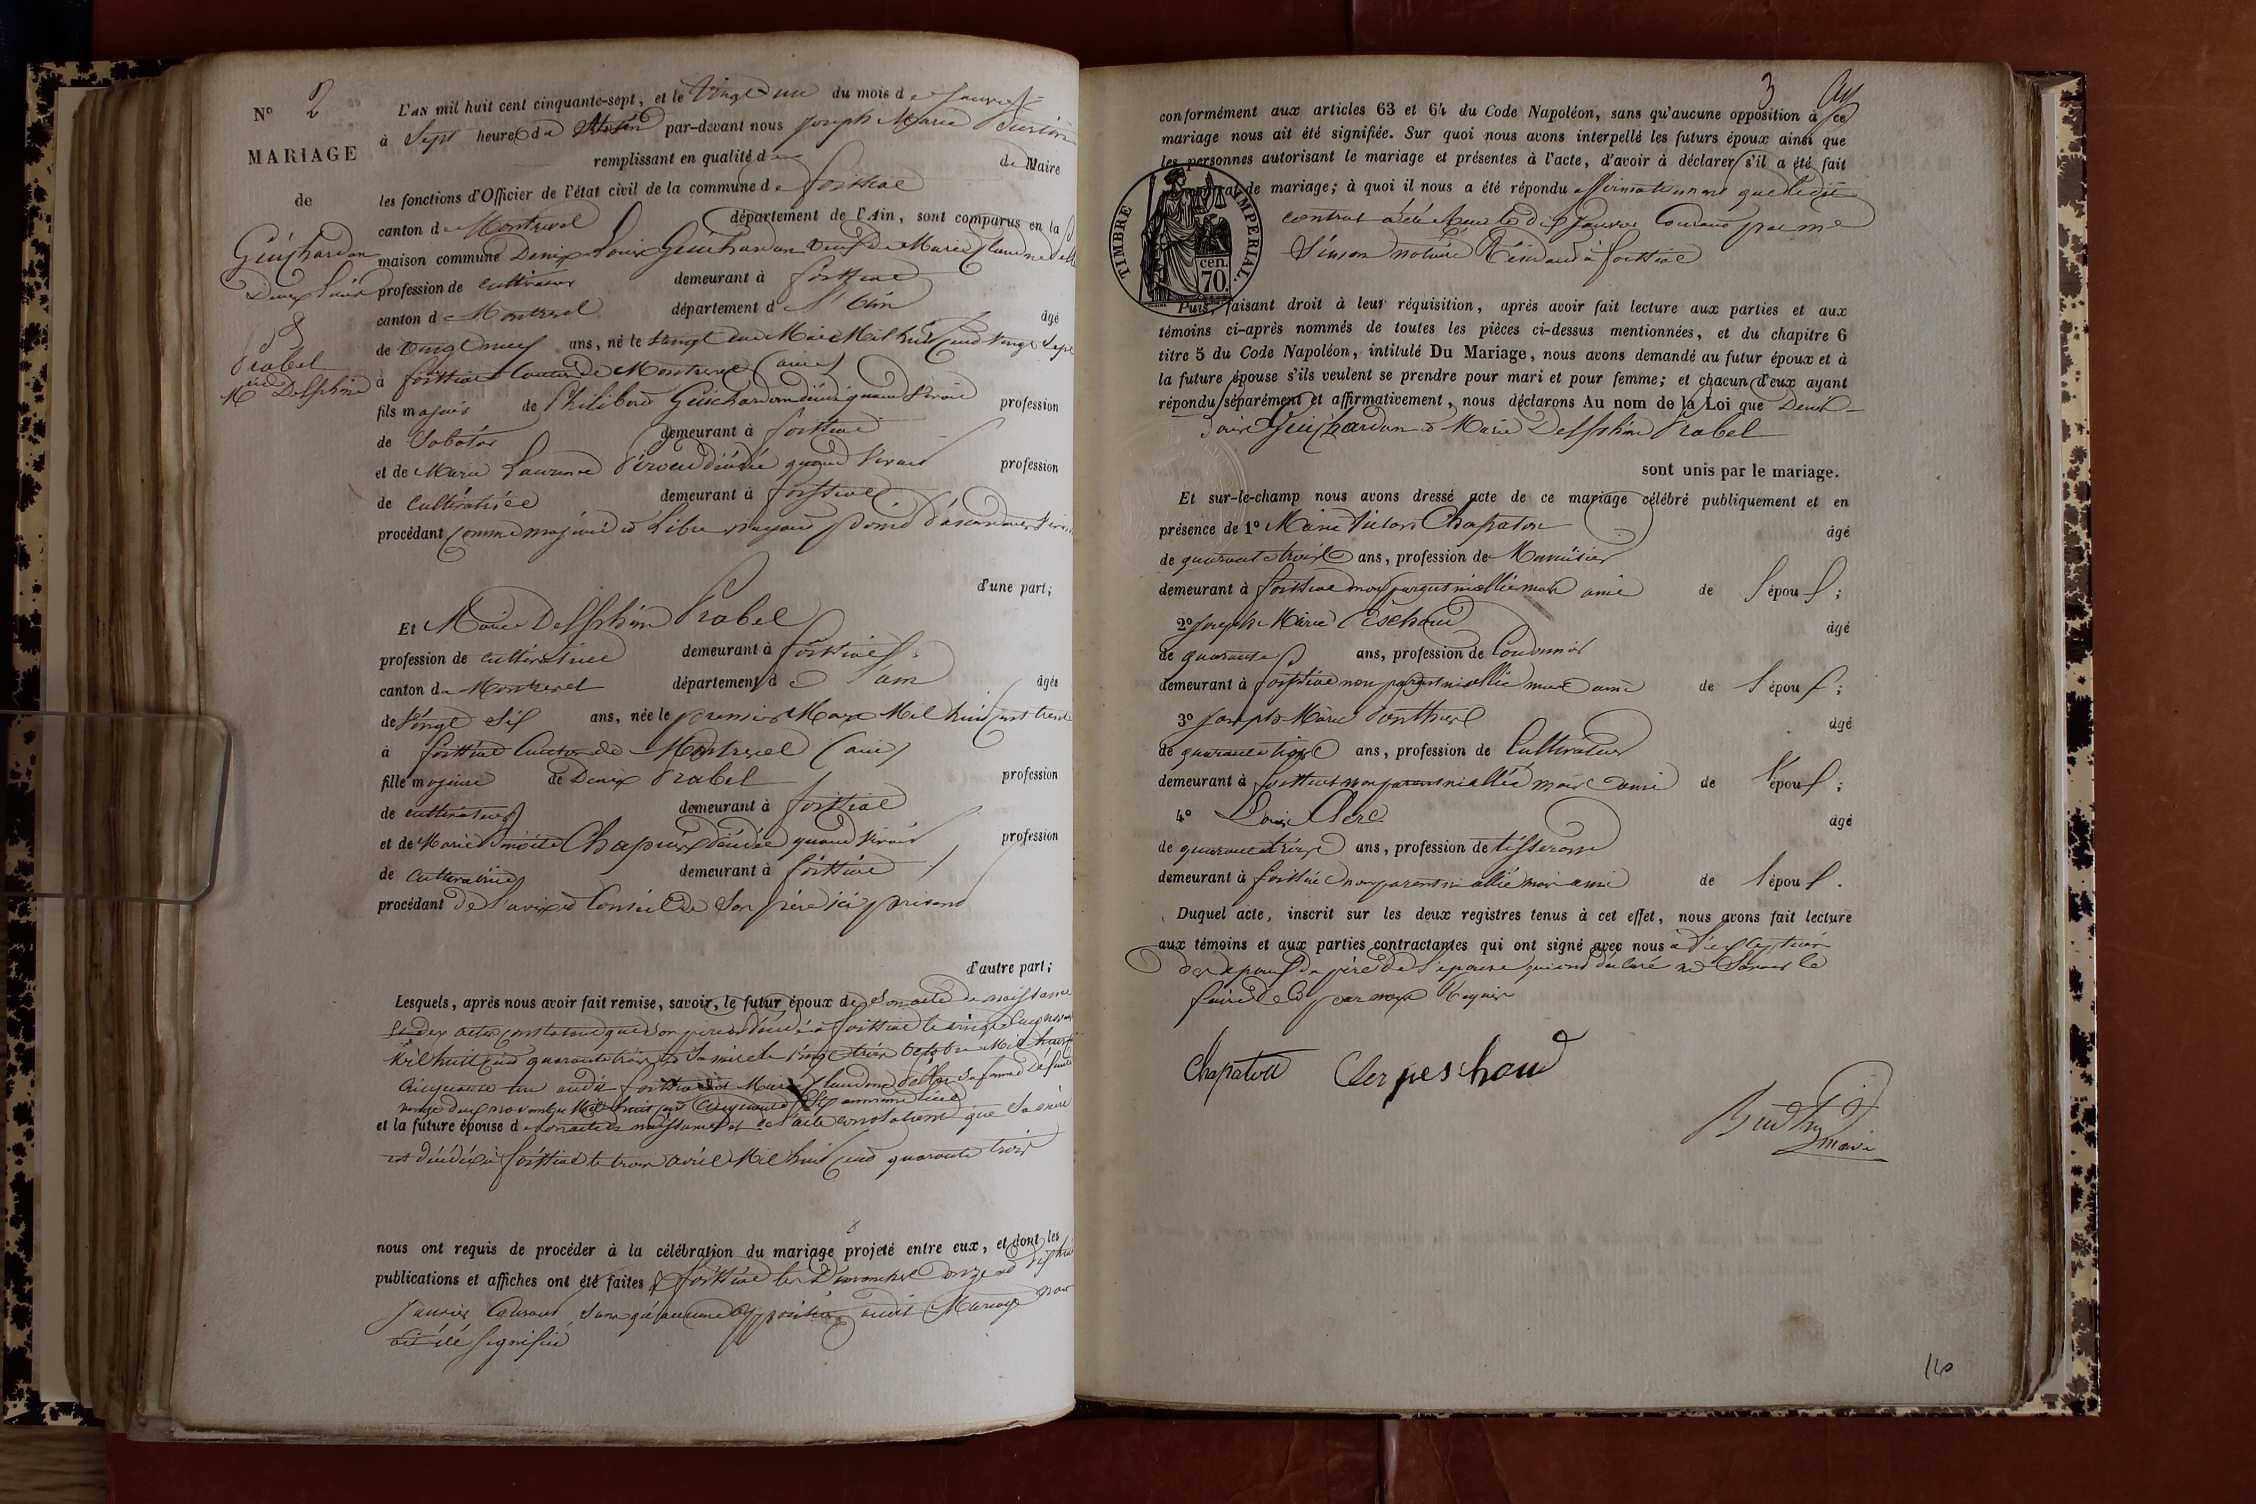 N° 2
MARIAGE
de
Guichardan
Denis Louis
&
Prabel
Mie Delphine
L'AN mil huit cent cinquante-sept, et le vingt un du mois de Janvier
à Sept heures du Matin par-devant nous Joseph Marie
remplissant en qualité de de Maire
les fonctions d'Officier de l'état civil de la commune de foissiat
canton de Montrevel département de l'Ain, sont comparus en la
maison commune Denis Louis Guichardan veuf de Marie Claudine
profession de cultivateur demeurant à foissiat
canton de Montrevel département de l'Ain âgé
de vingt neuf ans, né le vingt un Mai Mil huit cent vingt sept
à foissiat Canton de Montrevel (ain)
fils majeur de Philibert Guichardan décédé quand vivait profession
de Sabotier demeurant à foissiat
et de Marie Laurence décédée quand vivait profession
de cultivatrice demeurant à foissiat
procédant comme majeur et libre n'ayant point d'ascendant
d'une part;
Et Marie Delphine Prabel
profession de cultivatrice demeurant à foissiat
canton de Montrevel département de l'ain âgée
de vingt six ans, née le premier Mars Mil huit cent trente
à foissiat Canton de Montrevel (ain)
fille majeure de Denis Prabel profession
de cultivateur demeurant à foissiat
et de Marie Benoite Chapuis décédée quand vivait profession
de cultivatrice demeurant à foissiat
procédant de l'avis et Conseil de Son père ici présent
d'autre part;
Lesquels, après nous avoir fait remise, savoir, le futur époux de Son acte de naissance
et des actes constatant que Son père est décédé à foissiat le vingt
Mil huit cent quarante trois et Sa mère le vingt trois octobre Mil huit cent
Cinquante un audit foissiat et Marie Claudine Sa femme Défunte
deux novembre Mil huit cent Cinquante
et la future épouse de son acte de naissance et de l'acte constatant que Sa mère
est décédée à foissiat le trois avril Mil huit cent quarante trois
nous ont requis de procéder à la célébration du mariage projeté entre eux, et dont les
publications et affiches ont été faites à foissiat les Dimanches onze et dix huit
Janvier Courant, sans qu'aucune opposition audit Mariage nous
ait été signifiée
3
conformément aux articles 63 et 64 du Code Napoléon, sans qu'aucune opposition à ce
mariage nous ait été signifiée. Sur quoi nous avons interpellé les futurs époux ainsi que
les personnes autorisant le mariage et présentes à l'acte, d'avoir à déclarer s'il a été fait
contrat de mariage; à quoi il nous a été répondu affirmativement que ledit
contrat a été reçu le dix Janvier Courant par me
notaire Résidant à foissiat
TIMBRE IMPERIAL.
70 cen.
Puis, faisant droit à leur réquisition, après avoir fait lecture aux parties et aux
témoins ci-après nommés de toutes les pièces ci-dessus mentionnées, et du chapitre 6
titre 5 du Code Napoléon, intitulé Du Mariage, nous avons demandé au futur époux et à
la future épouse s'ils veulent se prendre pour mari et pour femme; et chacun d'eux ayant
répondu séparément et affirmativement, nous déclarons Au nom de la Loi que Denis
Louis Guichardan et Marie Delphine Prabel
sont unis par le mariage.
Et sur-le-champ nous avons dressé acte de ce mariage célébré publiquement et en
présence de 1° Marie Victor Chapaton âgé
de quarante trois ans, profession de Menuisier
demeurant à foissiat non parent ni allié mais ami de l'époux;
2° Joseph Marie Peschoud âgé
de quarante ans, profession de Cordonnier
demeurant à foissiat non parent ni allié mais ami de l'époux;
3° Joseph Marie Ponthus âgé
de quarante trois ans, profession de Cultivateur
demeurant à foissiat non parent ni allié mais ami de l'époux;
4° Louis Clerc âgé
de quarante treize ans, profession de tisserand
demeurant à foissiat non parent ni allié mais ami de l'époux.
Duquel acte, inscrit sur les deux registres tenus à cet effet, nous avons fait lecture
aux témoins et aux parties contractantes qui ont signé avec nous à l'exception
des époux du père de l'épouse qui ont déclaré ne Savoir le
faire de ce par nous Requis
Chapaton Clerc peschoud
maire
140